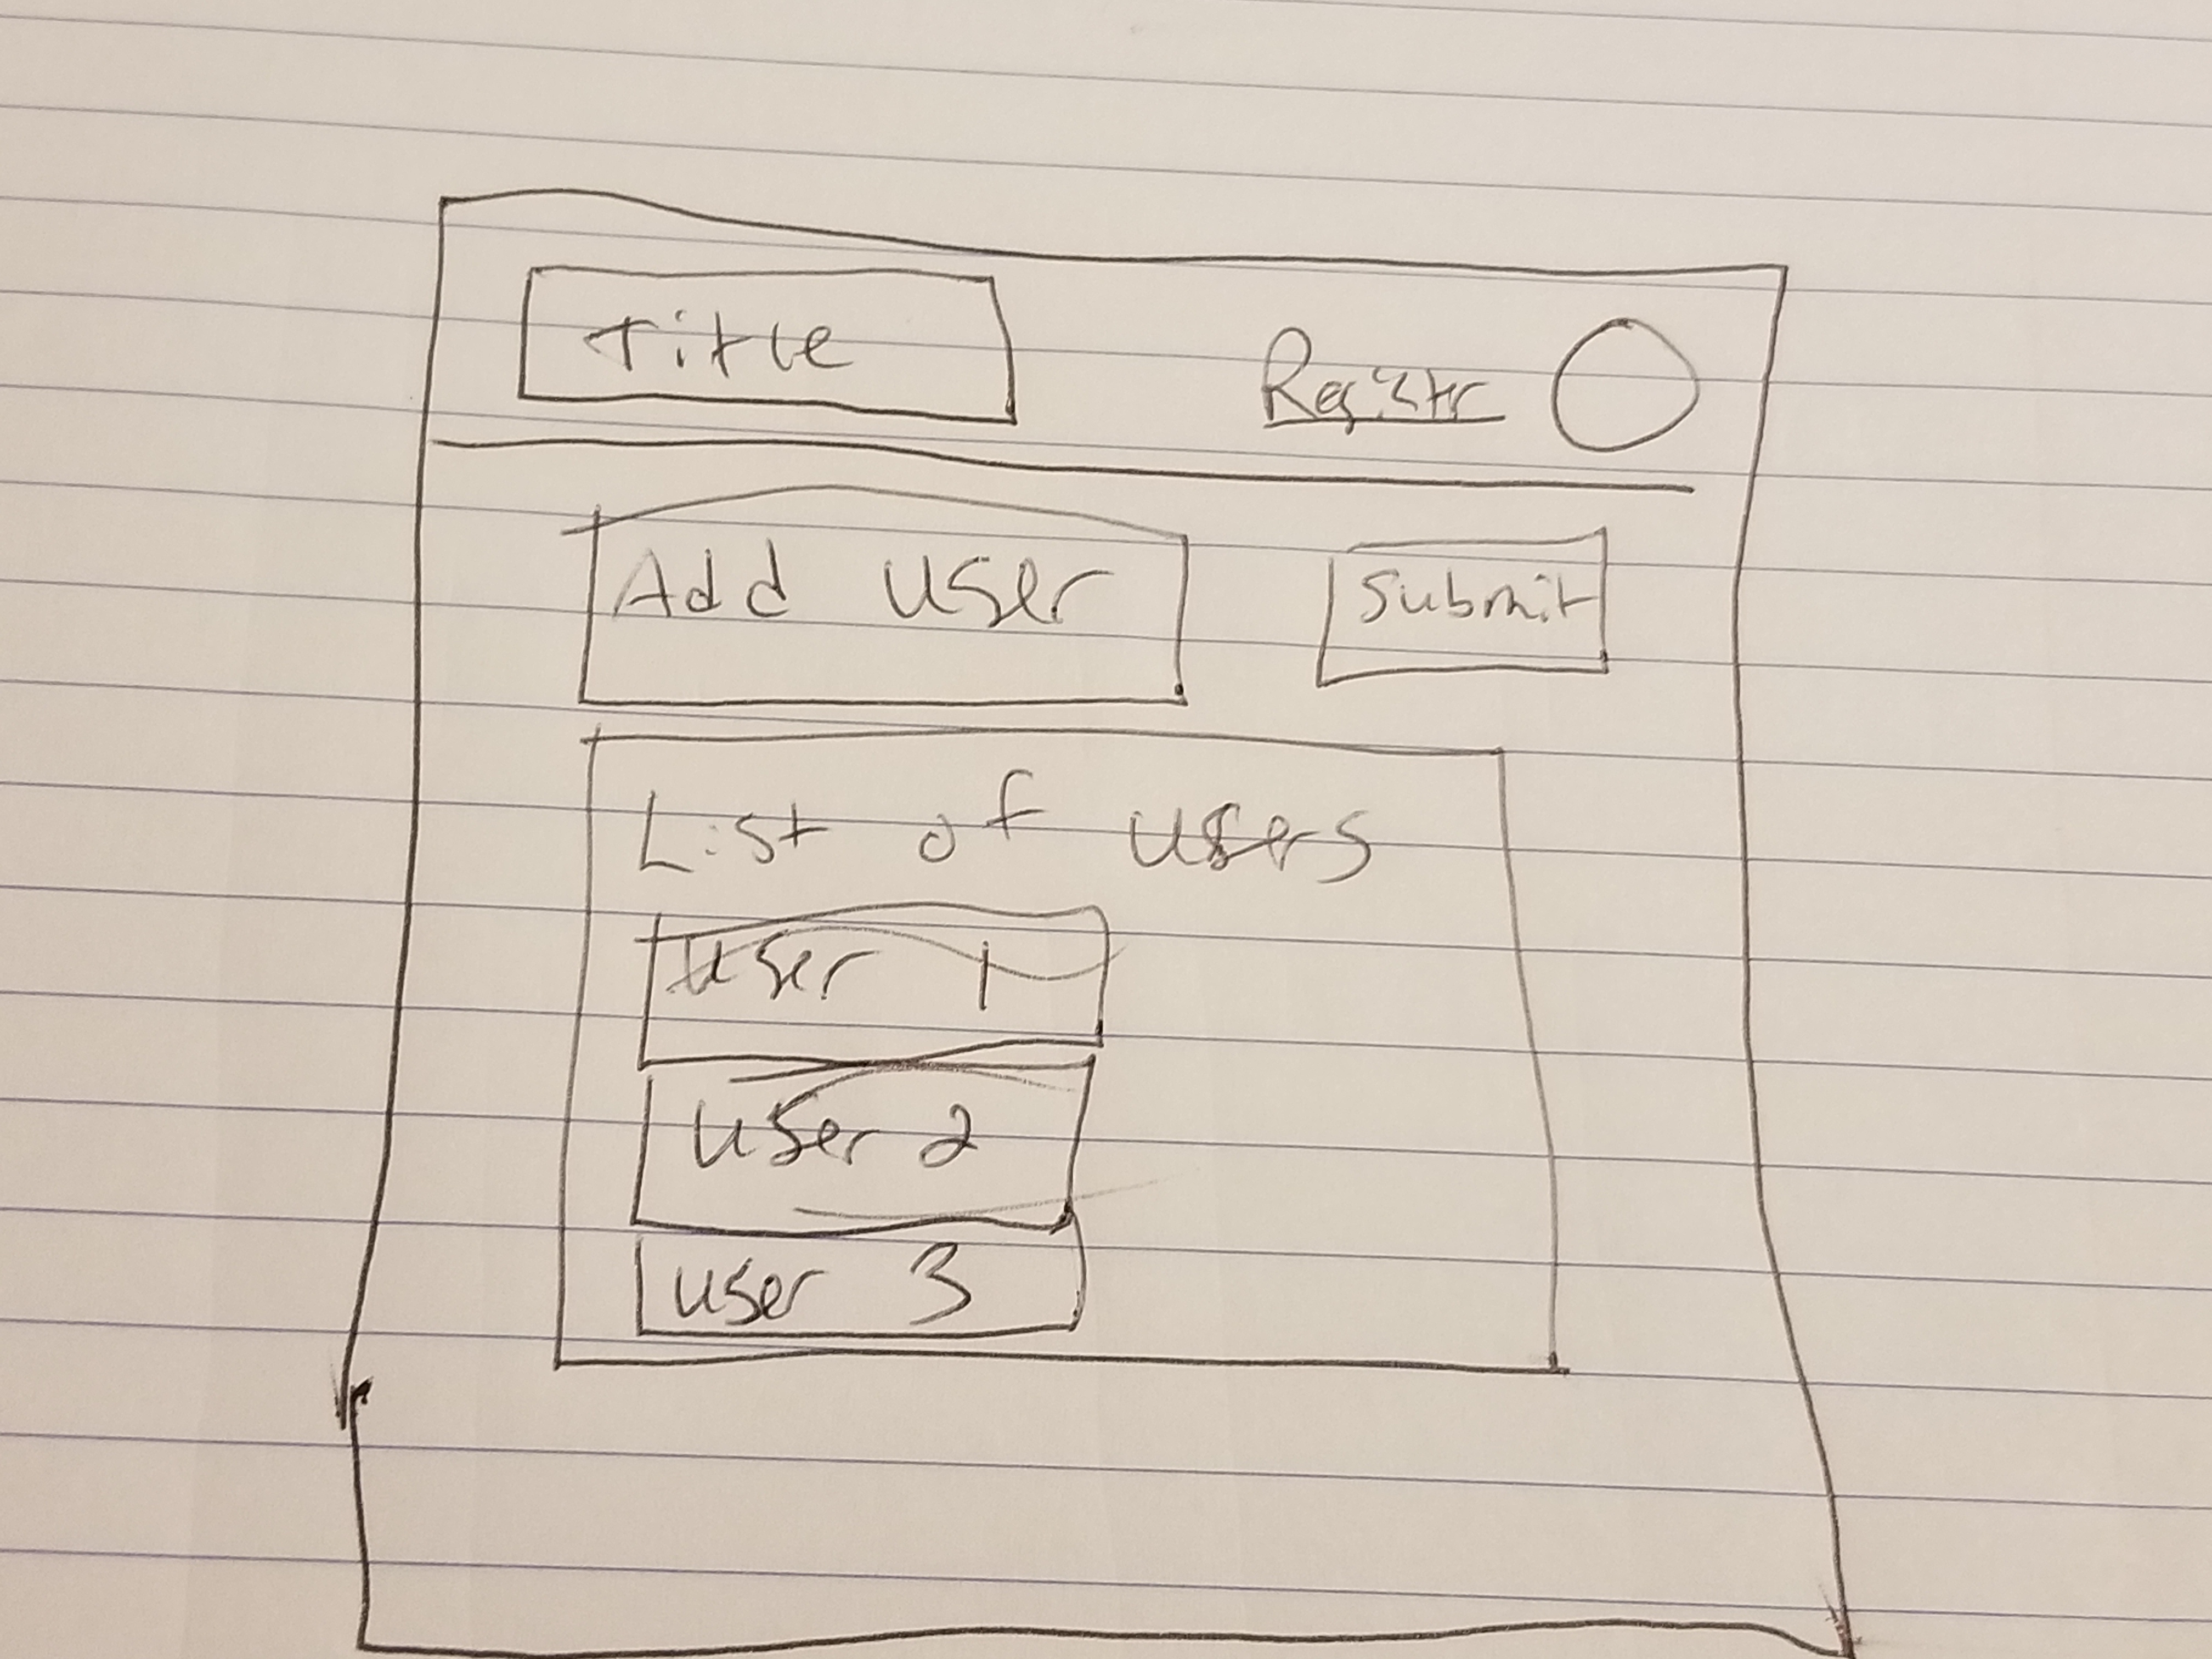 Title
Registr
Add user
Submit
List of users
User 1
user 2
user 3